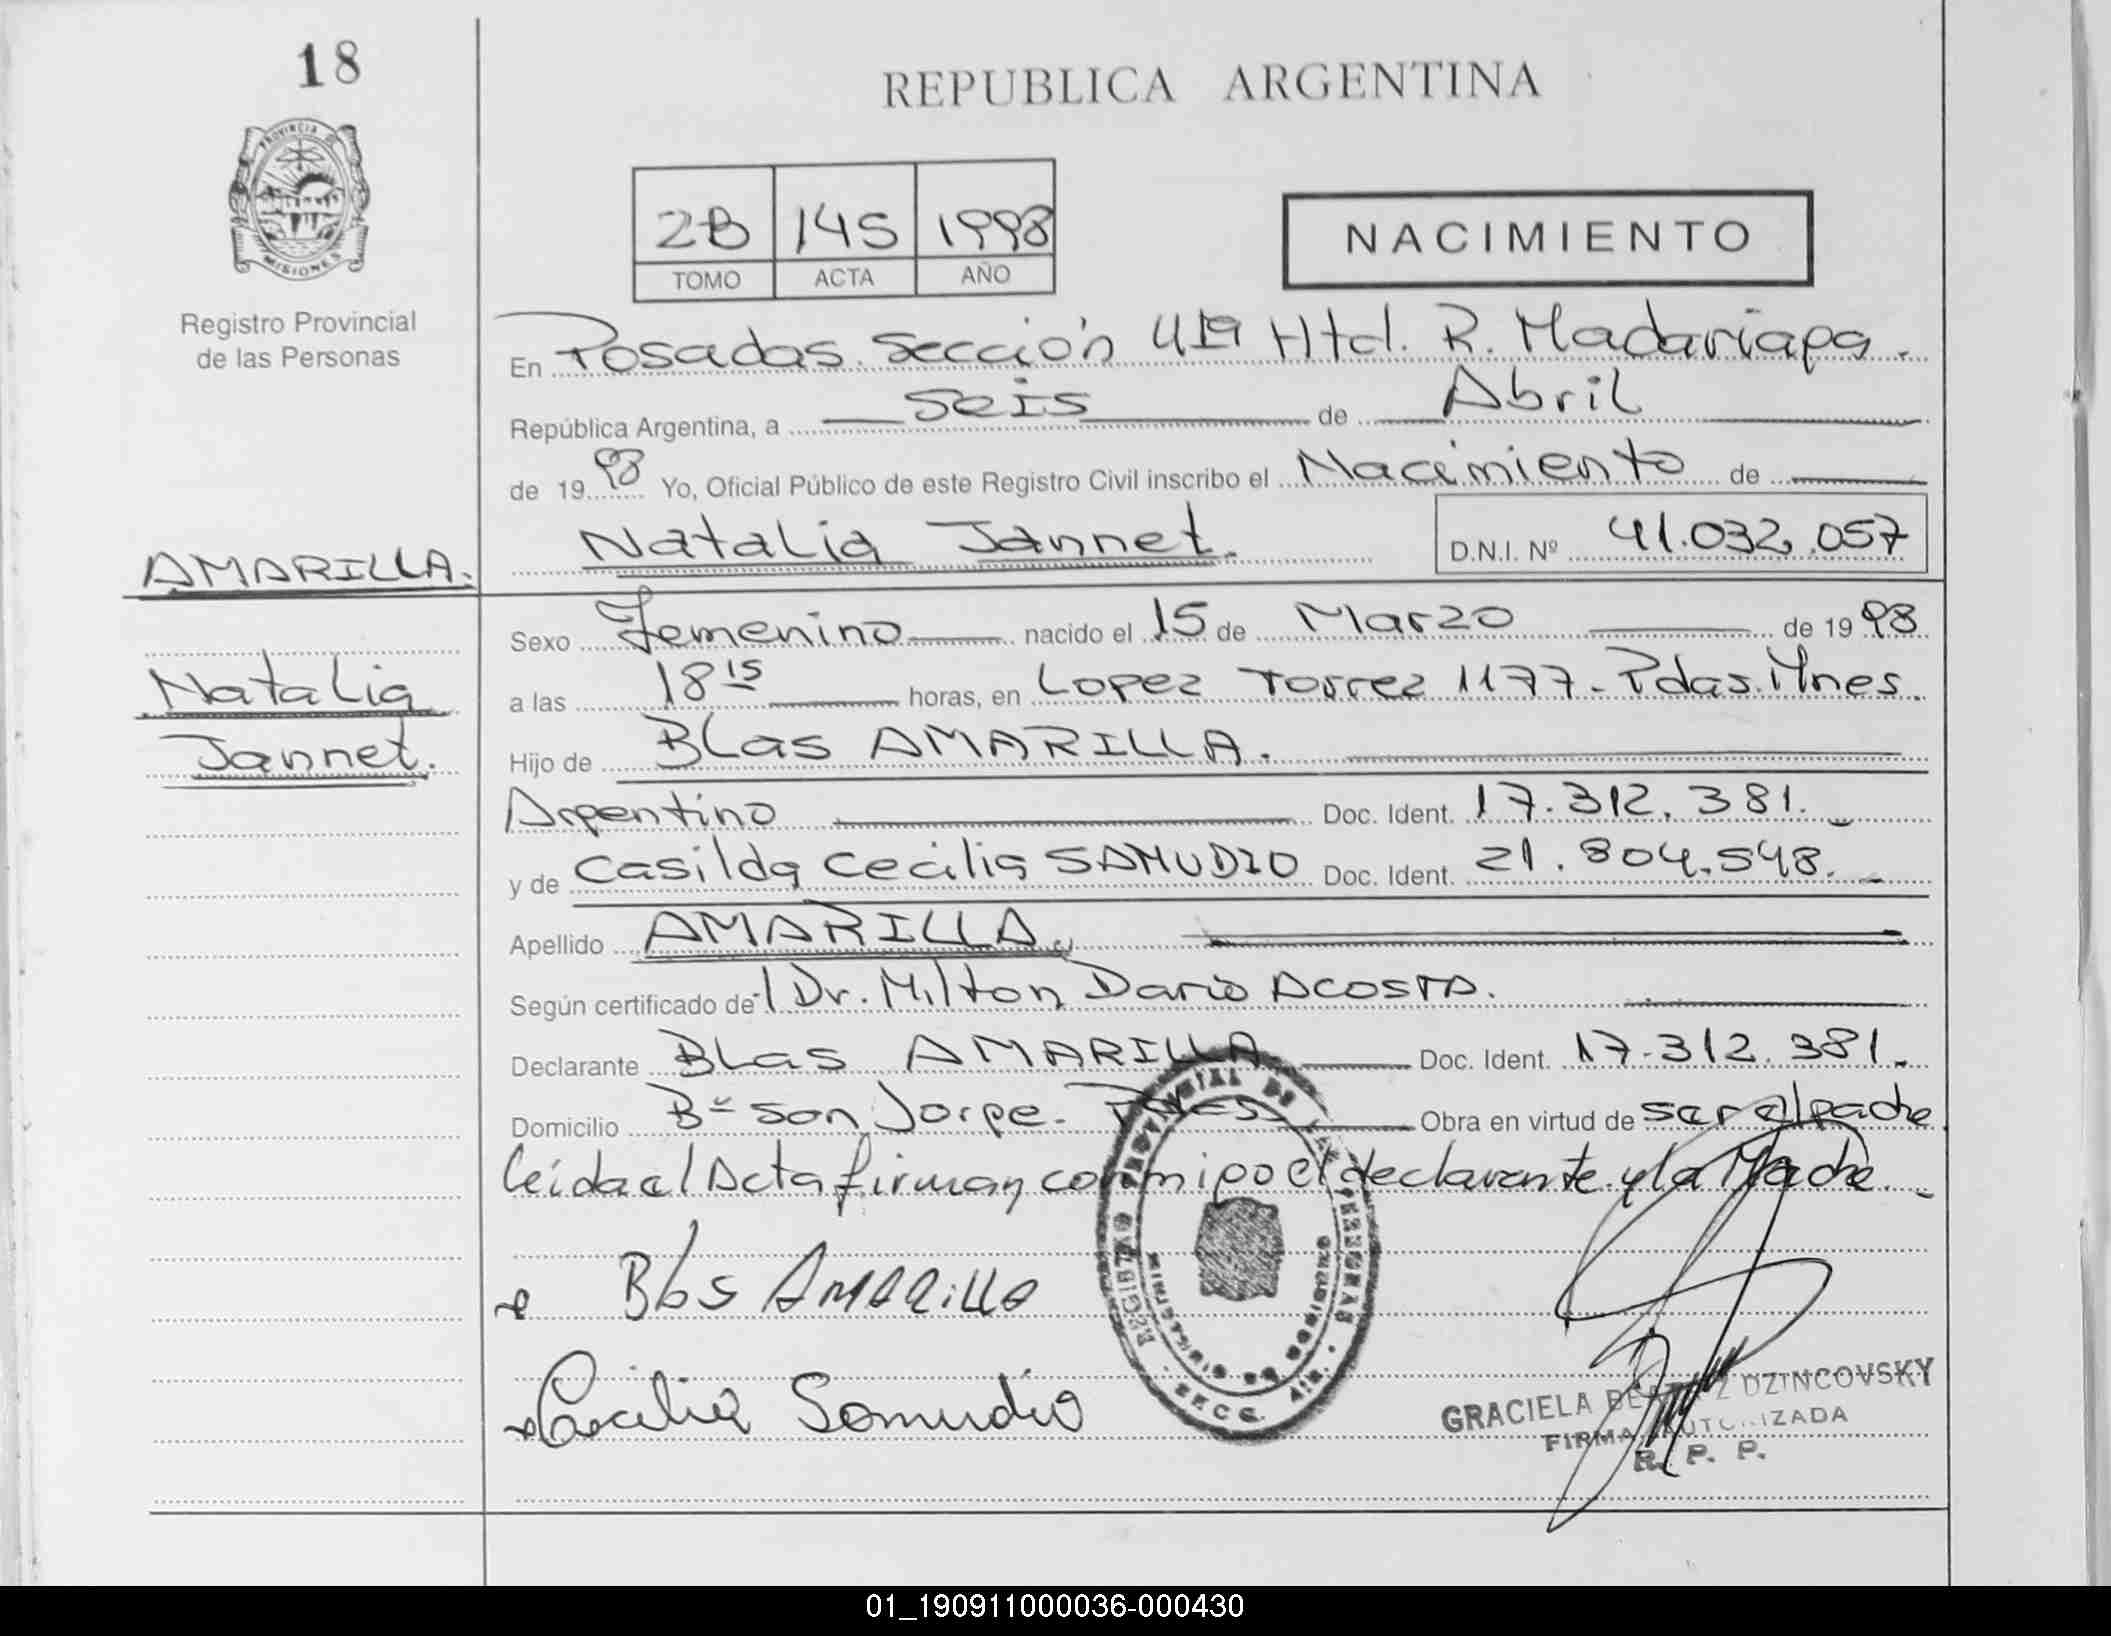 18
REPUBLICA ARGENTINA
PROVINCIA DE
MISIONES
Registro Provincial
de las Personas
2B 145 1998
TOMO ACTA AÑO
NACIMIENTO
En Posadas. Sección 4ta Htal. R. Madariaga.
República Argentina, a seis de Abril
de 1998 Yo, Oficial Público de este Registro Civil inscribo el Nacimiento de
Natalia Jannet. D.N.I. Nº 41.032.057
AMARILLA.
Natalia
Jannet.
Sexo Femenino nacido el 15 de Marzo de 1998
a las 18 15 horas, en Lopez Torrez 1177 - Pdas. Mnes.
Hijo de Blas AMARILLA.
Argentino Doc. Ident. 17.312.381.
y de Casilda Cecilia SAMUDIO Doc. Ident. 21.804.548.
Apellido AMARILLA
Según certificado del Dr. Milton Dario ACOSTA.
Declarante Blas AMARILLA Doc. Ident. 17.312.381.
Domicilio Bº San Jorge. Obra en virtud de ser el padre
leída el Acta firman conmigo el declarante y la Madre.
Blas AMARILLA
Cecilia Samudio
REGISTRO PROVINCIAL DE LAS PERSONAS
MINISTERIO DE GOBIERNO
GRACIELA BEATRIZ DZINCOVSKY
FIRMA AUTORIZADA
R. P. P.
01_190911000036-000430